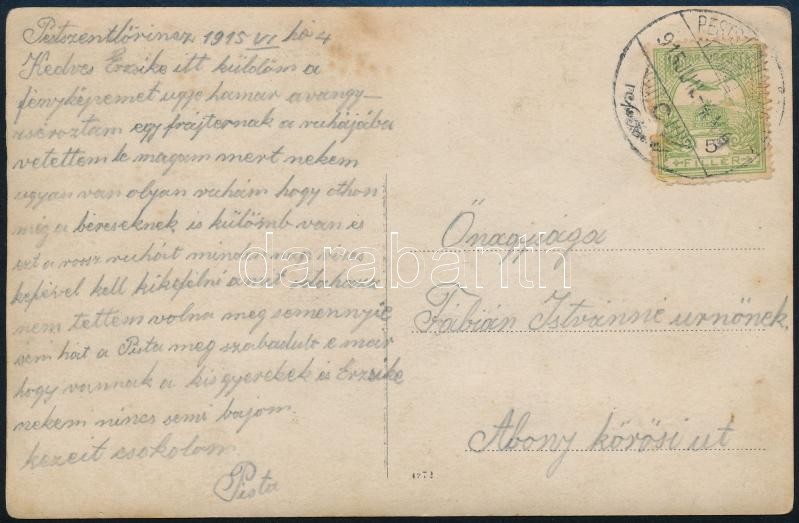 Pestszentlőrincz 1915 VI hó 4
Kedves Erzsike itt küldöm a
fényképemet ugye hamar avangy-
zseroztam egy frájternak a ruhájába
vetettem le magam mert nekem
ugyan van olyan ruhám hogy othon
még a béreseknek is külömb van és
ezt a rossz ruhát minden nap vörös
kefével kell kikefélni amit odahaza
nem tettem volna meg semennyié
sem hát a Pista meg szabadult e már
hogy vannak a kis gyerekek és Erzsike
nekem nincs semi bajom
kezeit csokolom
Pista
Őnagysága
Fábián Istvánné urnőnek
Abony kőrösi ut
5
FILLÉR
darabanth